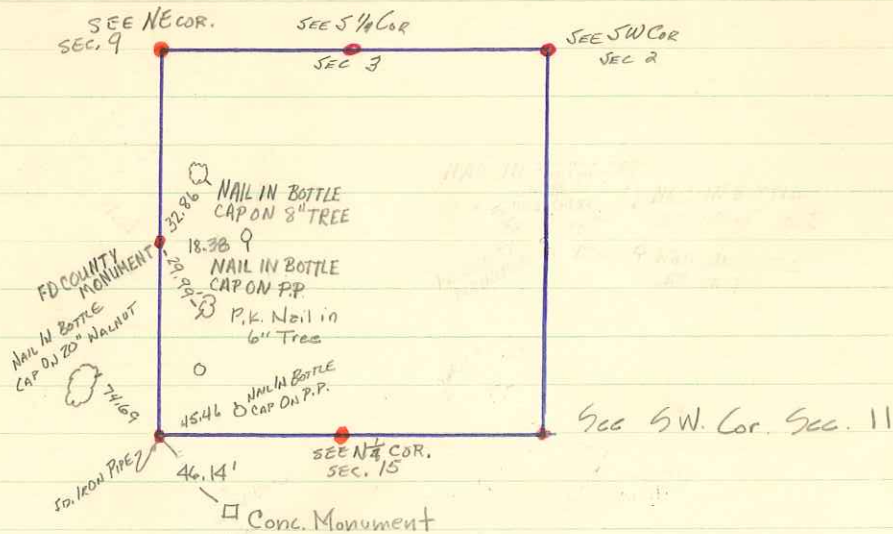 SEE NE COR.
SEC. 9
SEE S 1/4 COR
SEC 3
SEE SW COR
SEC 2
32.86
NAIL IN BOTTLE
CAP ON 8" TREE
18.38
NAIL IN BOTTLE
CAP ON P.P.
29.99
P.K. Nail in
6" Tree
FD COUNTY
MONUMENT
NAIL IN BOTTLE
CAP ON 20" WALNUT
74.69
45.46
NAIL IN BOTTLE
CAP ON P.P.
See SW. Cor. Sec. 11
SEE N 1/4 COR.
SEC. 15
IRON PIPE
46.14'
Conc. Monument